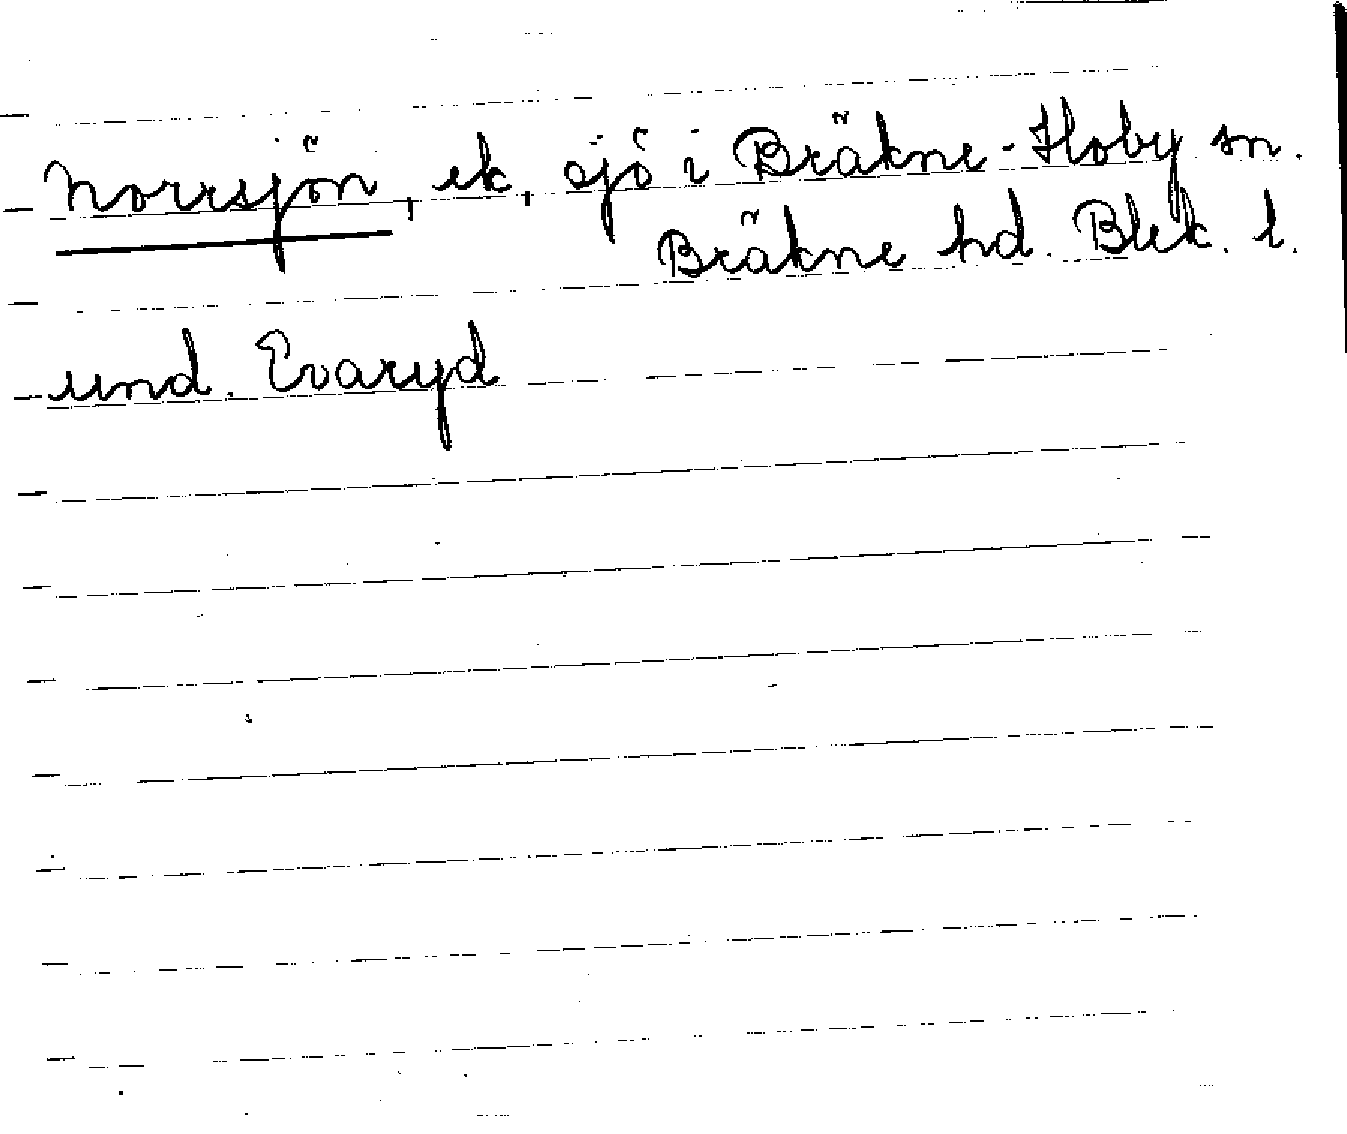 Norrsjön, ek, sjö i Bräkne-Hoby sn.
Bräkne hd. Blek. l.
und. Evaryd